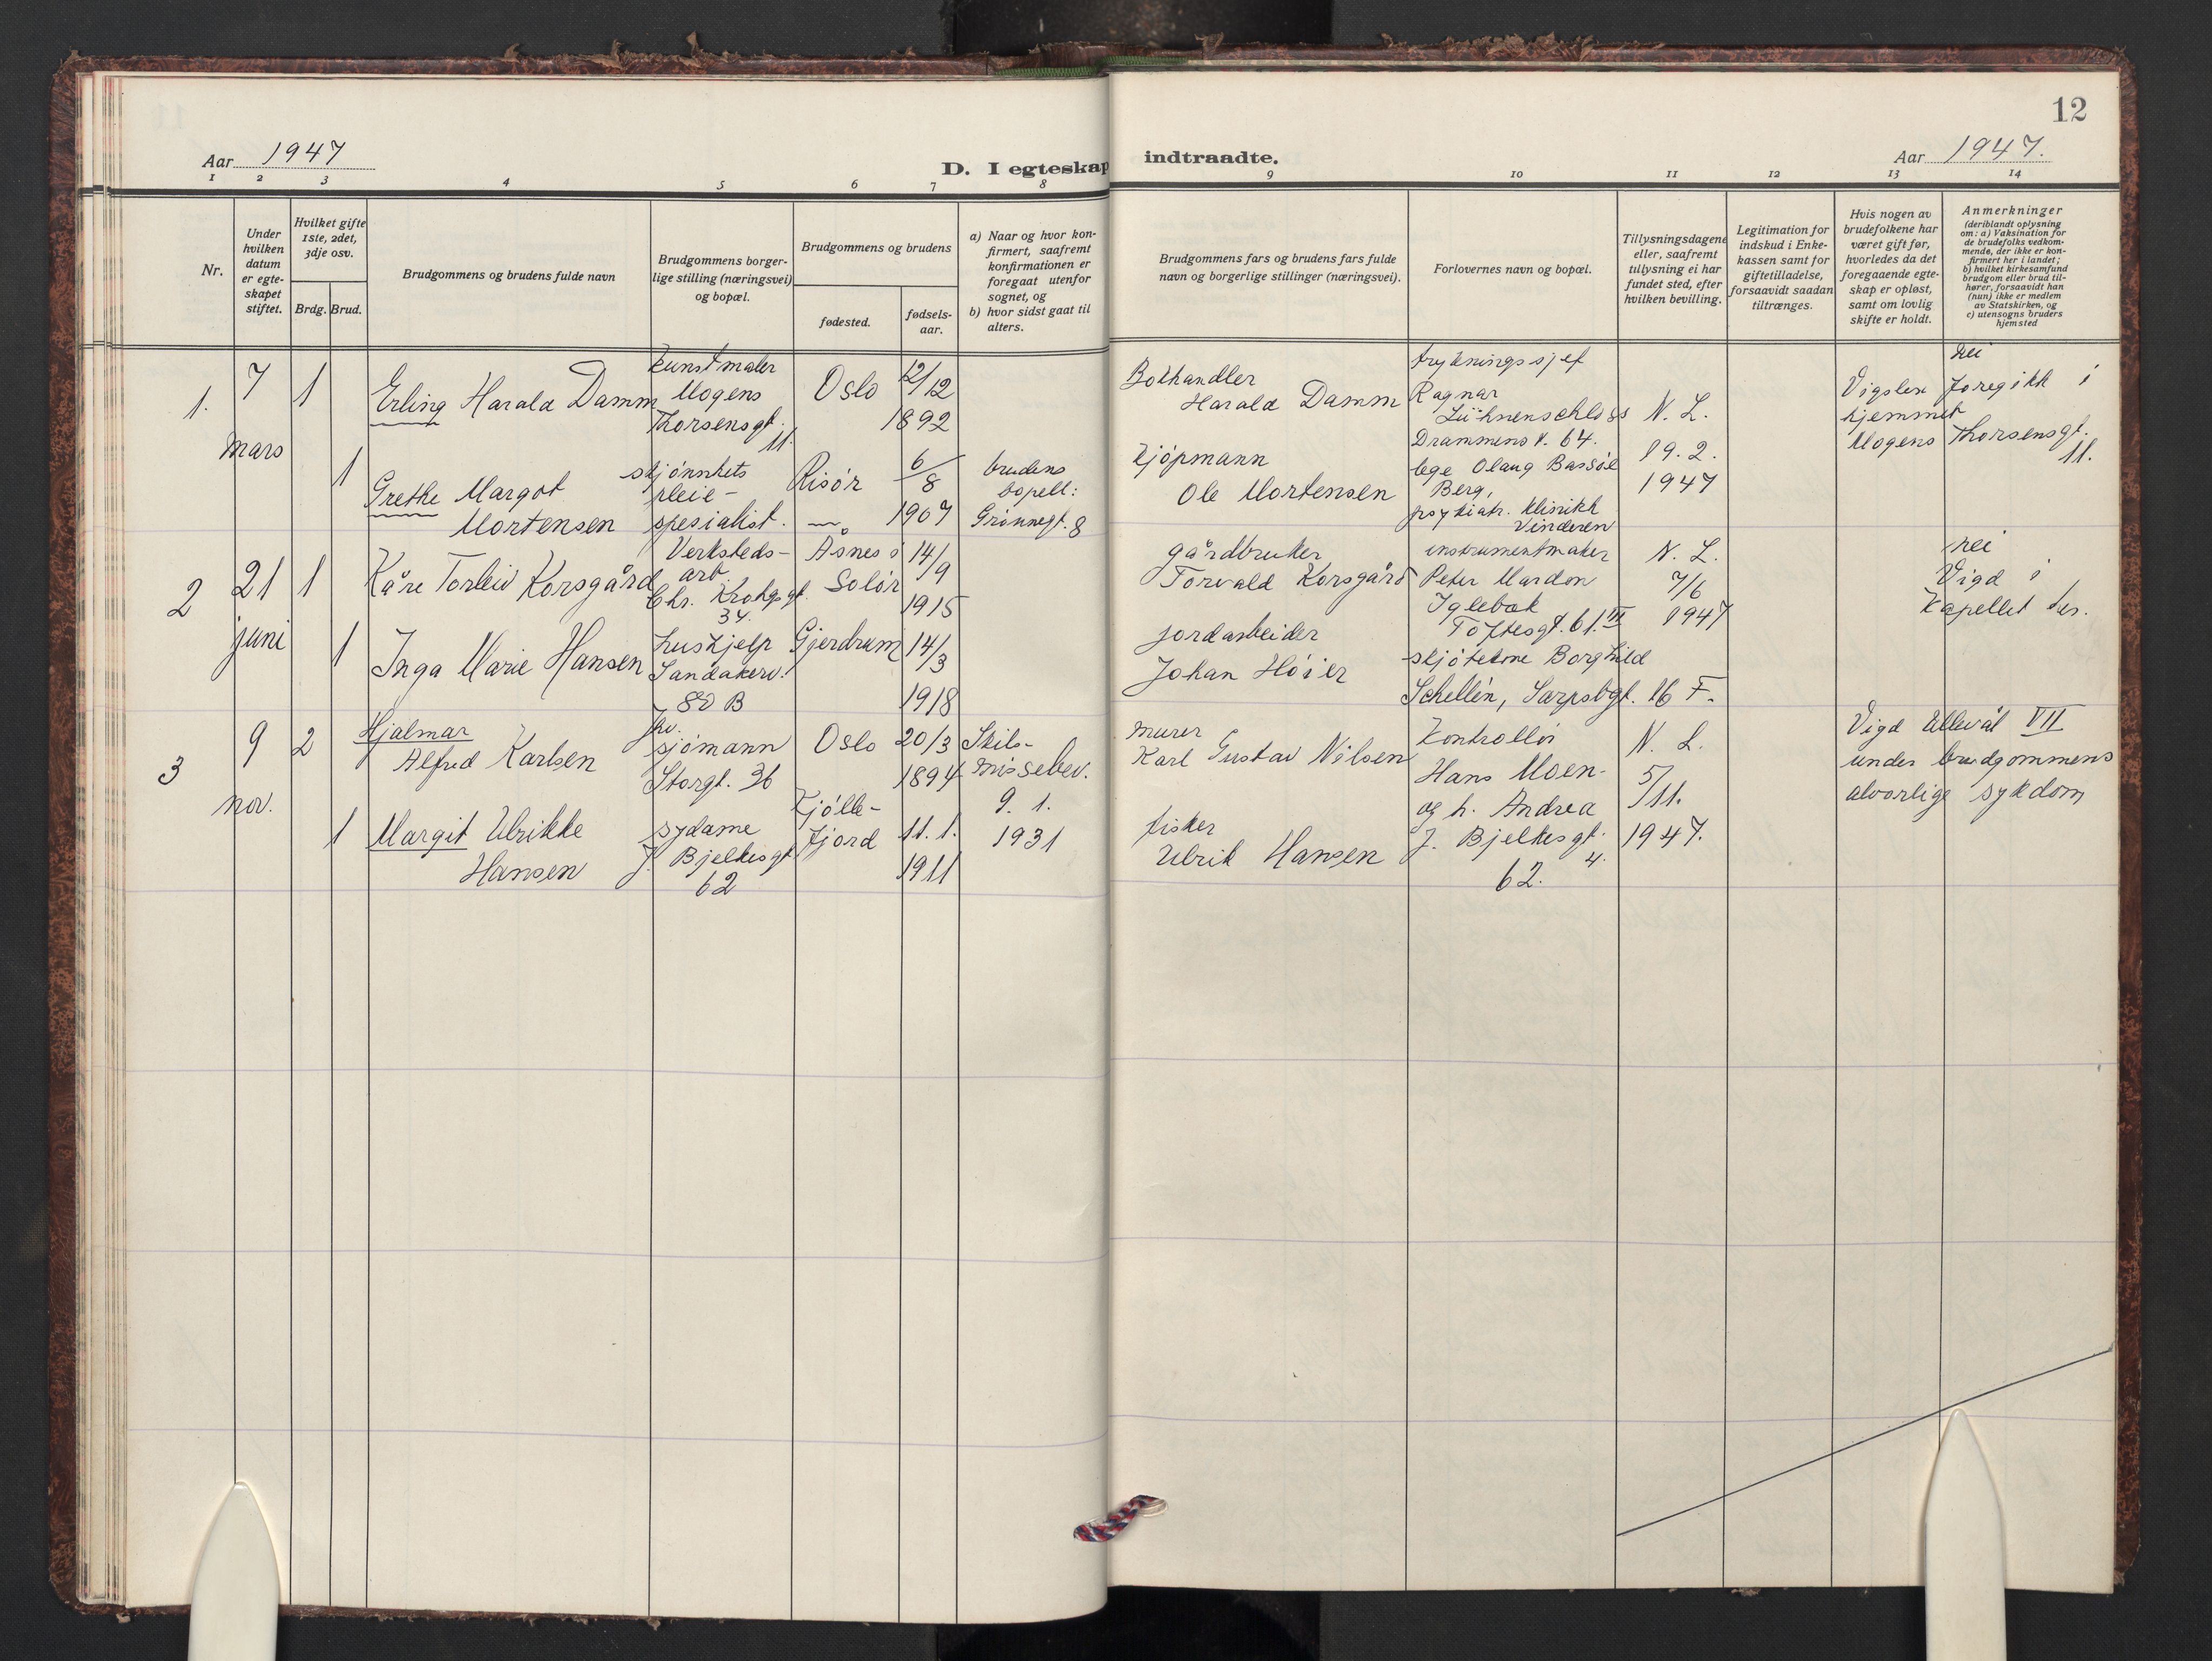 12
Aar 1947
D. I egteskap indtraadte.
Aar 1947.
1 2 3 4 5 6 7 8 9 10 11 12 13 14
Nr.
Under hvilken datum er egte-skapet stiftet.
Hvilket gifte 1ste, 2det, 3dje osv.
Brdg. Brud.
Brudgommens og brudens fulde navn
Brudgommens borger-lige stilling (næringsvei) og bopæl.
Brudgommens og brudens
fødested.
fødsels-aar.
a) Naar og hvor kon-firmert, saafremt konfirmationen er foregaat utenfor sognet, og
b) hvor sidst gaat til alters.
Brudgommens fars og brudens fars fulde navn og borgerlige stillinger (næringsvei).
Forlovernes navn og bopæl.
Tillysningsdagene eller, saafremt tillysning ei har fundet sted, efter hvilken bevilling.
Legitimation for indskud i Enke-kassen samt for giftetilladelse, forsaavidt saadan tiltrænges.
Hvis nogen av brudefolkene har været gift før, hvorledes da det foregaaende egte-skap er opløst, samt om lovlig skifte er holdt.
Anmerkninger
(deriblandt oplysning om: a) Vaksination for de brudefolks vedkom-mende, der ikke er kon-firmert her i landet;
b) hvilket kirkesamfund brudgom eller brud til-hører, forsaavidt han (hun) ikke er medlem av Statskirken, og
c) utensogns bruders hjemsted
1.
7
mars
1
Erling Harald Damm
kunstmaler
Mogens
Thorsensgt.
11.
Oslo
12/12
1892
Bokhandler
Harald Damm
trykningssjef
Ragnar
Lühnenschloss
Drammensv. 64.
N. L.
19. 2.
1947
nei
Vigslen foregikk i
hjemmet
Mogens Thorsensgt.
11.
1
Grethe Margot
Mortensen
skjønnhets
pleie-
spesialist.
Risør
6/8
1907
brudens
bopell:
Grønnegt. 8
Kjøpmann
Ole Mortensen
lege Olaug Bassøe
Berg,
psykiatr. klinikk
Vinderen
2
21
juni
1
Kåre Torleiv Korsgård
Verksteds-
arb.
Chr. Krohgsgt.
34.
Åsnes i
Solør
14/9
1915
gårdbruker
Torvald Korsgård
instrumentmaker
Peter Mardon
Iglebæk
Toftesgt. 61. III
N. L.
7/6
1947
nei
Vigd i
Kapellet her.
1
Inga Marie Hansen
hushjelp
Sandakerv.
80 B
Gjerdrum
14/3
1918
jordarbeider
Johan Høier
skjøtekone Borghild
Schellén, Sarpsbgt. 16 F.
3
9
nov.
2
Hjalmar
Alfred Karlsen
fhv.
sjømann
Storgt. 36
Oslo
20/3
1894
Skils-
missebev.
9. 1.
1931
murer
Karl Gustav Nilsen
Kontrollør
Hans Moen
og h. Andrea
J. Bjelkesgt.
62. 4.
N. L.
5/11.
1947.
Vigd Ullevål VII
under brudgommens
alvorlige sykdom
1
Margit Ulrikke
Hansen
sydame
J. Bjelkesgt.
62
Kjølle-
fjord
11. 1.
1911
fisker
Ulrik Hansen